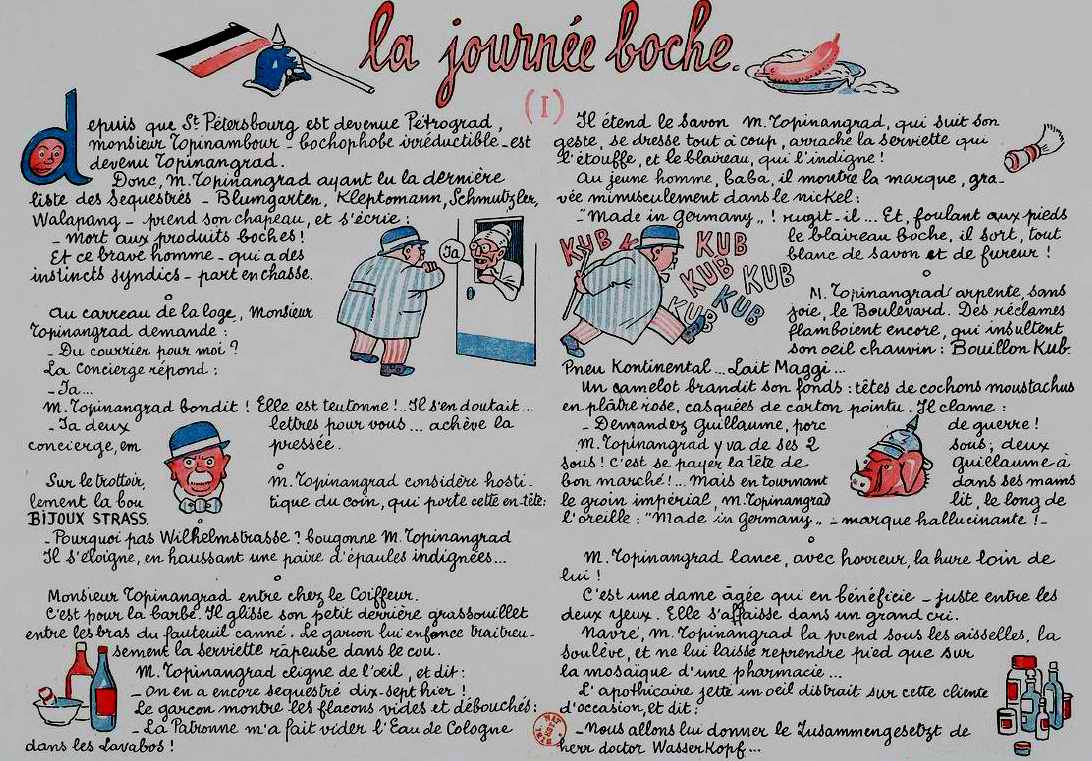 la journée boche.
(I)
depuis que St Pétersbourg est devenue Pétrograd,
monsieur Topinambour - bochophobe irréductible - est
devenu Topinangrad.
Donc, M. Topinangrad ayant lu la dernière
liste des séquestrés - Blumgarten, Kleptomann, Schmutzler,
Walapang - prend son chapeau, et s'écrie :
- Mort aux produits boches !
Et ce brave homme - qui a des
instincts syndics - part en chasse.
Ja
Au carreau de la loge, Monsieur
Topinangrad demande :
- Du courrier pour moi ?
La Concierge répond :
- Ja...
M. Topinangrad bondit ! Elle est teutonne !.. Il s'en doutait...
- Ja deux lettres pour vous... achève la
concierge, em pressée.
Sur le trottoir, M. Topinangrad considère hosti-
lement la bou tique du coin, qui porte cette en-tête:
BIJOUX STRASS
- Pourquoi pas Wilhelmstrasse ? bougonne M. Topinangrad
Il s'éloigne, en haussant une paire d'épaules indignées...
Monsieur Topinangrad entre chez le Coiffeur.
C'est pour la barbe. Il glisse son petit derrière grassouillet
entre les bras du fauteuil canné. Le garçon lui enfonce traitreu-
sement la serviette râpeuse dans le cou.
M. Topinangrad cligne de l'œil, et dit :
- On en a encore séquestré dix-sept hier !
Le garçon montre les flacons vides et débouchés :
- La Patronne m'a fait vider l'Eau de Cologne
dans les Lavabos !
Il étend le savon M. Topinangrad, qui suit son
geste, se dresse tout à coup, arrache la serviette qui
l'étouffe, et le blaireau, qui l'indigne !
Au jeune homme, baba, il montre la marque, gra-
vée minusculement dans le nickel :
"Made in Germany" ! rugit-il... Et, foulant aux pieds
le blaireau boche, il sort, tout
blanc de savon et de fureur !
KUB K KUB
KUB KUB
KUB KUB
M. Topinangrad arpente, sans
joie, le Boulevard. Des réclames
flamboient encore, qui insultent
son oeil chauvin : Bouillon Kub.
Pneu Kontinental... Lait Maggi...
Un camelot brandit son fonds : têtes de cochons moustachus
en plâtre rose, casquées de carton pointu. Il clame :
- Demandez Guillaume, porc de guerre !
M. Topinangrad y va de ses 2 sous ; deux
sous ! C'est se payer la tête de guillaume à
bon marché !... Mais en tournant dans ses mains
le groin impérial, M. Topinangrad lit, le long de
l'oreille : "Made in Germany" - marque hallucinante ! -
M. Topinangrad lance, avec horreur, la hure loin de
lui !
C'est une dame âgée qui en bénéficie - juste entre les
deux yeux. Elle s'affaisse dans un grand cri.
Navré, M. Topinangrad la prend sous les aisselles, la
soulève, et ne lui laisse reprendre pied que sur
la mosaïque d'une pharmacie...
L'apothicaire jette un oeil distrait sur cette cliente
d'occasion, et dit :
- Nous allons lui donner le Zusammengesetzt de
herr doctor Wasserkopf...